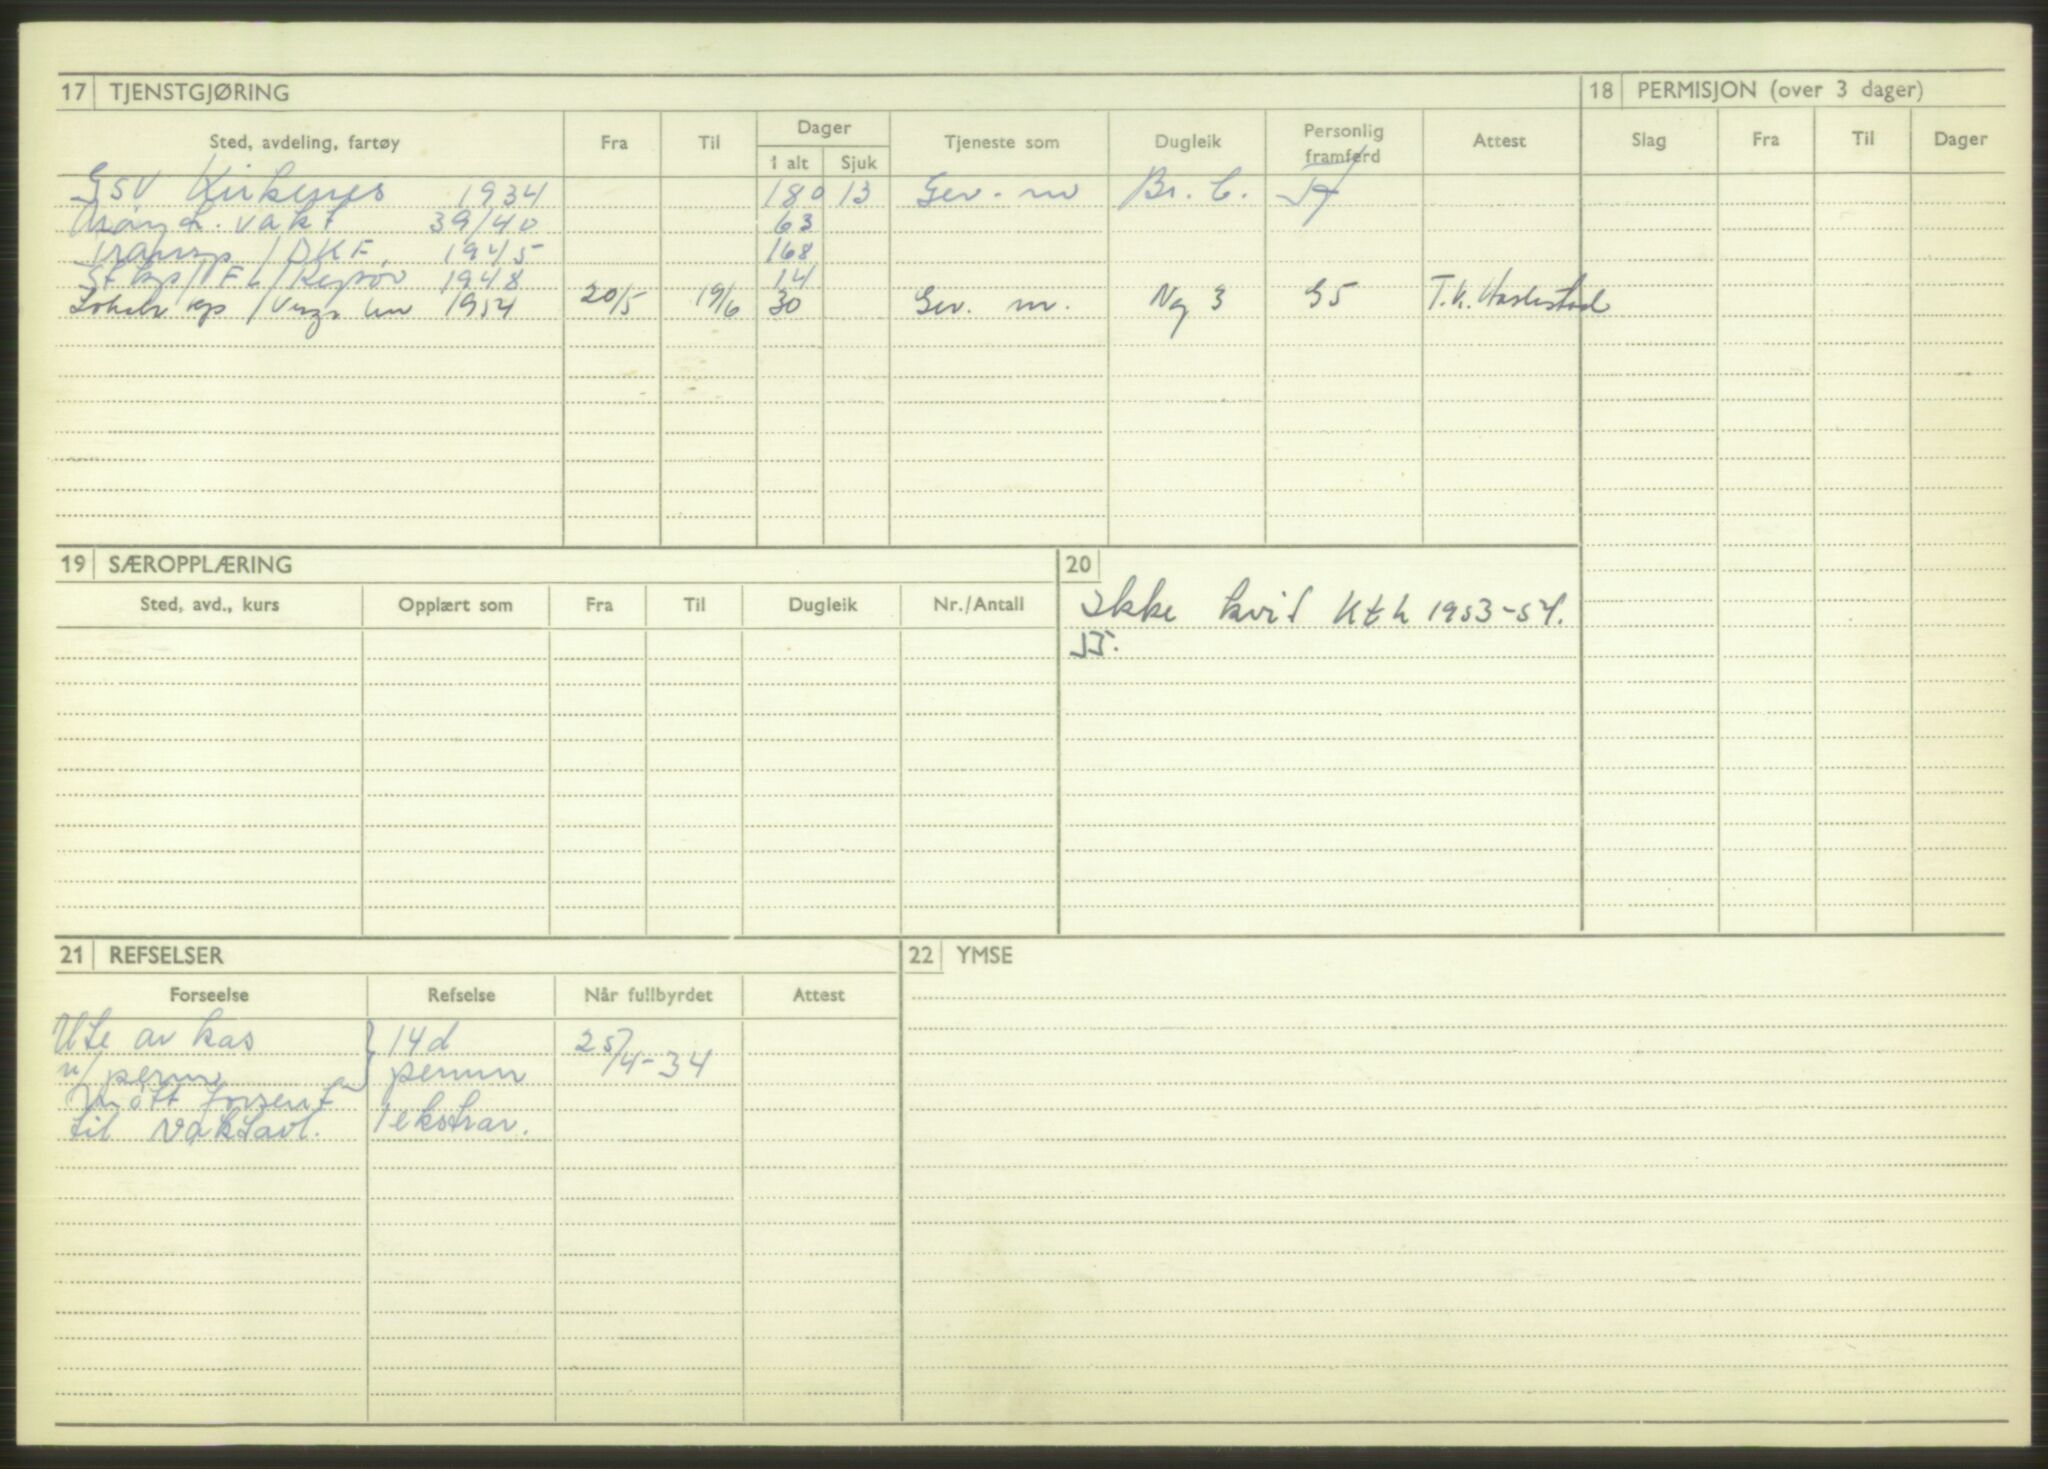 17 TJENSTGJØRING
Sted, avdeling, fartøy Fra Til Dager Tjeneste som Dugleik Personlig framferd Attest
I alt Sjuk
GSV Kirkenes 1934 180 13 Gev. m Br. C.
vakt 39/40 63
Transp / DKF. 1945 168
1948 14
Lokalv kp / 1954 20/5 19/6 30 Gev. m. Ng 3 G5 T. K. Haslestad
18 PERMISJON (over 3 dager)
Slag Fra Til Dager
19 SÆROPPLÆRING
Sted, avd., kurs Opplært som Fra Til Dugleik Nr./Antall
20
Ikke kvit Kth 1953-54.
55.
21 REFSELSER
Forseelse Refselse Når fullbyrdet Attest
Ute av kas 14d 25/4-34
u/perm permn
Møtt forsent
til vaktavl. 1 ekstrav.
22 YMSE